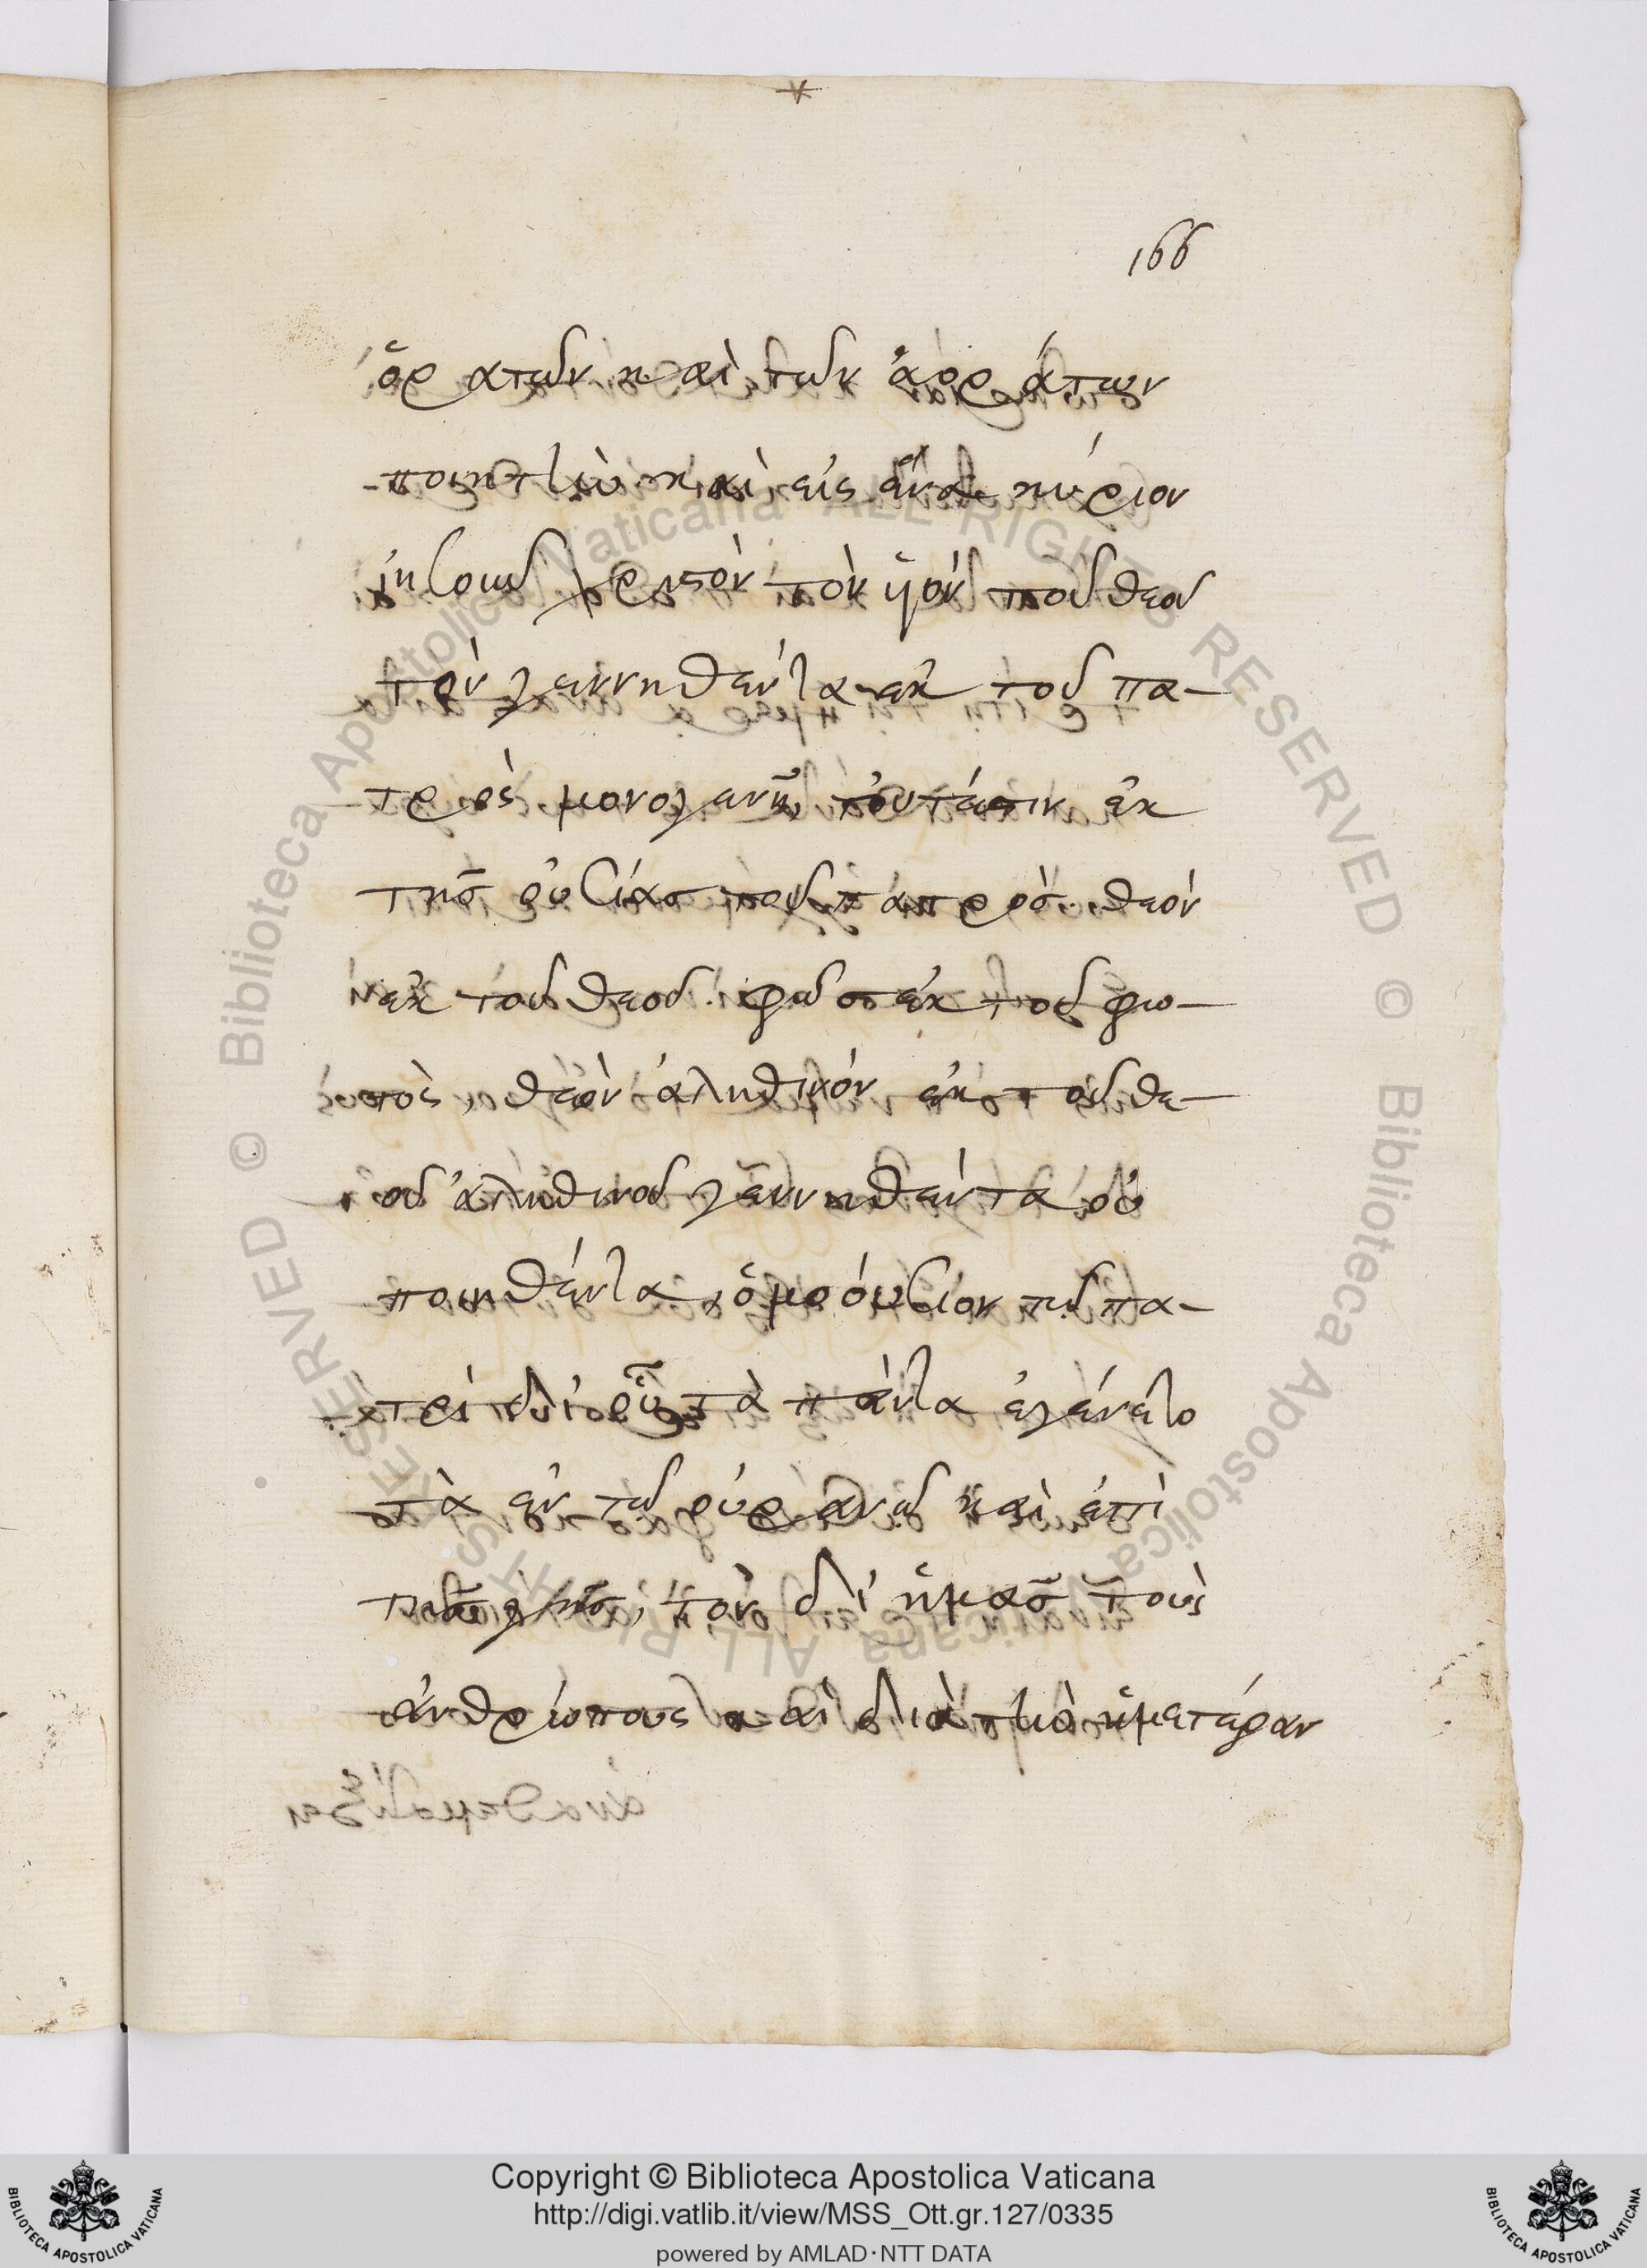 166
ὁρατῶν καὶ τῶν ἀοράτων
ποιητὴν καὶ εἰς ἕνα κύριον
ἰησοῦν χριστὸν τὸν ὑὸν τοῦ θεοῦ
τὸν γεννηθέντα ἐκ τοῦ πα-
τρὸς μονογενῆ, τουτέστιν ἐκ
τῆς οὐσίας τοῦ πατρὸς. θεὸν
ἐκ τοῦ θεοῦ. φῶς ἐκ τοῦ φω-
τὸς, θεὸν ἀληθινὸν ἐκ τοῦ θε-
οῦ ἀληθινοῦ γεννηθέντα οὐ
ποιηθέντα, ὁμοούσιον τῶ πα-
τρὶ δι' οὗ τὰ πάντα ἐγένετο
τὰ ἐν τῶ οὐρανῶ καὶ ἐπὶ
τῆς γῆς, τὸν δι' ἡμᾶς τοὺς
ἀνθρώπους καὶ διὰ τὴν ἡμετέραν
Biblioteca Apostolica Vaticana ALL RIGHTS RESERVED ©
Biblioteca Apostolica Vaticana ALL RIGHTS RESERVED ©
Copyright © Biblioteca Apostolica Vaticana
http://digi.vatlib.it/view/MSS_Ott.gr.127/0335
powered by AMLAD·NTT DATA
BIBLIOTECA APOSTOLICA VATICANA
BIBLIOTECA APOSTOLICA VATICANA